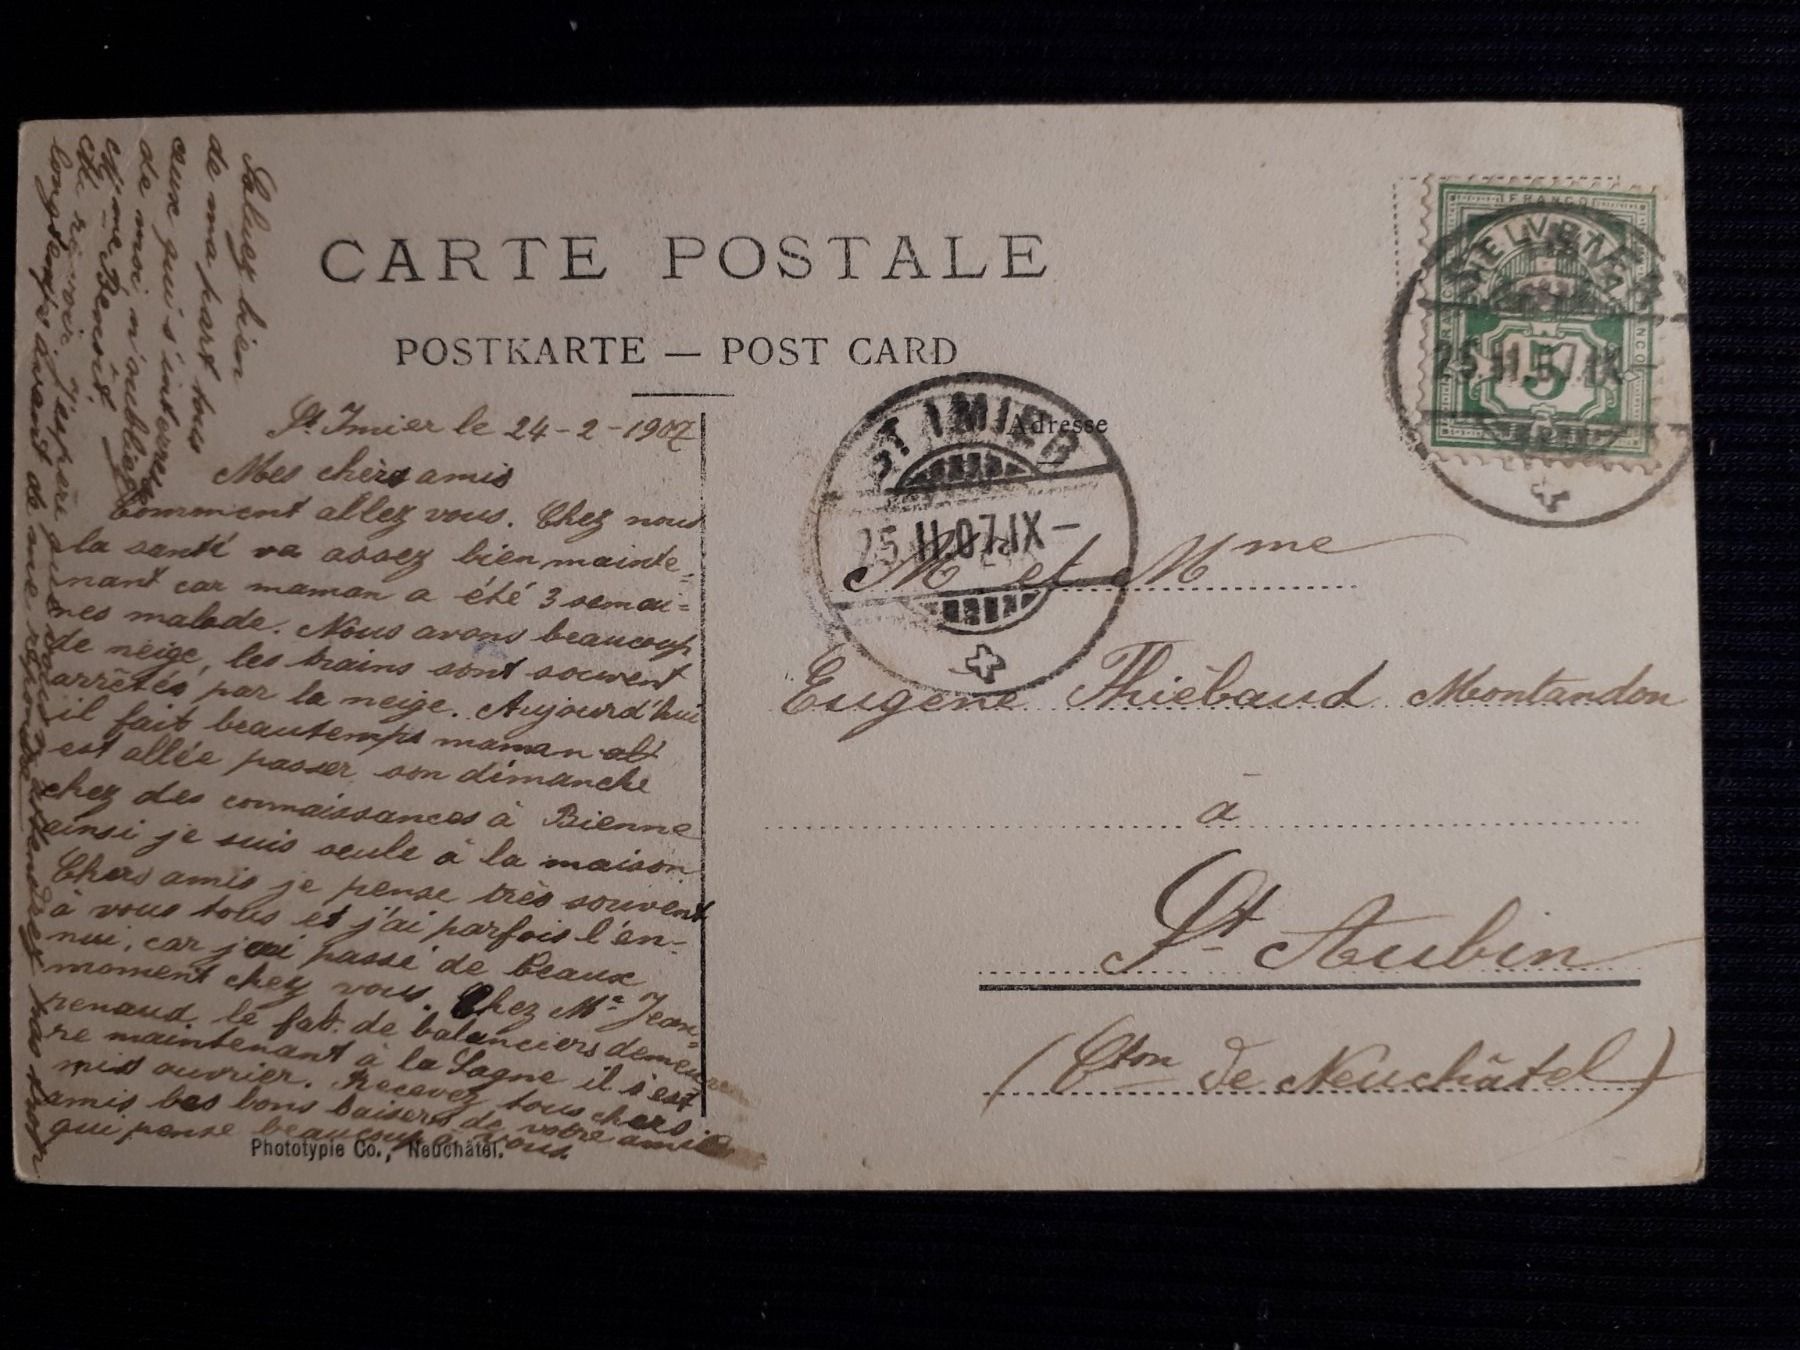 CARTE POSTALE
POSTKARTE — POST CARD
Adresse
FRANCO
HELVETIA
5
ST IMIER
25.II.07.IX–
St. Imier le 24-2-1907
Mes chers amis
Comment allez vous. Chez nous
la santé va assez bien mainte=
nant car maman a été 3 semai=
nes malade. Nous avons beaucoup
de neige, les trains sont souvent
arrêtés par la neige. Aujourd'hui
il fait beautemps maman
est allée passer son dimanche
chez des connaissances à Bienne
ainsi je suis seule à la maison
Chers amis je pense très souvent
à vous tous et j'ai parfois l'en-
nui, car j'ai passé de beaux
moment chez vous. Chez Mr Jean=
renaud le fab. de balanciers demeu
re maintenant à la Sagne il s'est
mis ouvrier. Recevez tous chers
amis les bons baisers de votre amie
qui pense beaucoup à vous.
Saluez bien
de ma part tous
ceux qui s'intéressent
de moi, n'oubliez
Mme Benoit
Au revoir j'espère que vous
n'attendrez pas trop
longtemps avant de me répondre
Mr et Mme
Eugène Thiébaud Montandon
à
St Aubin
(Cton de Neuchâtel)
Phototypie Co., Neuchâtel.